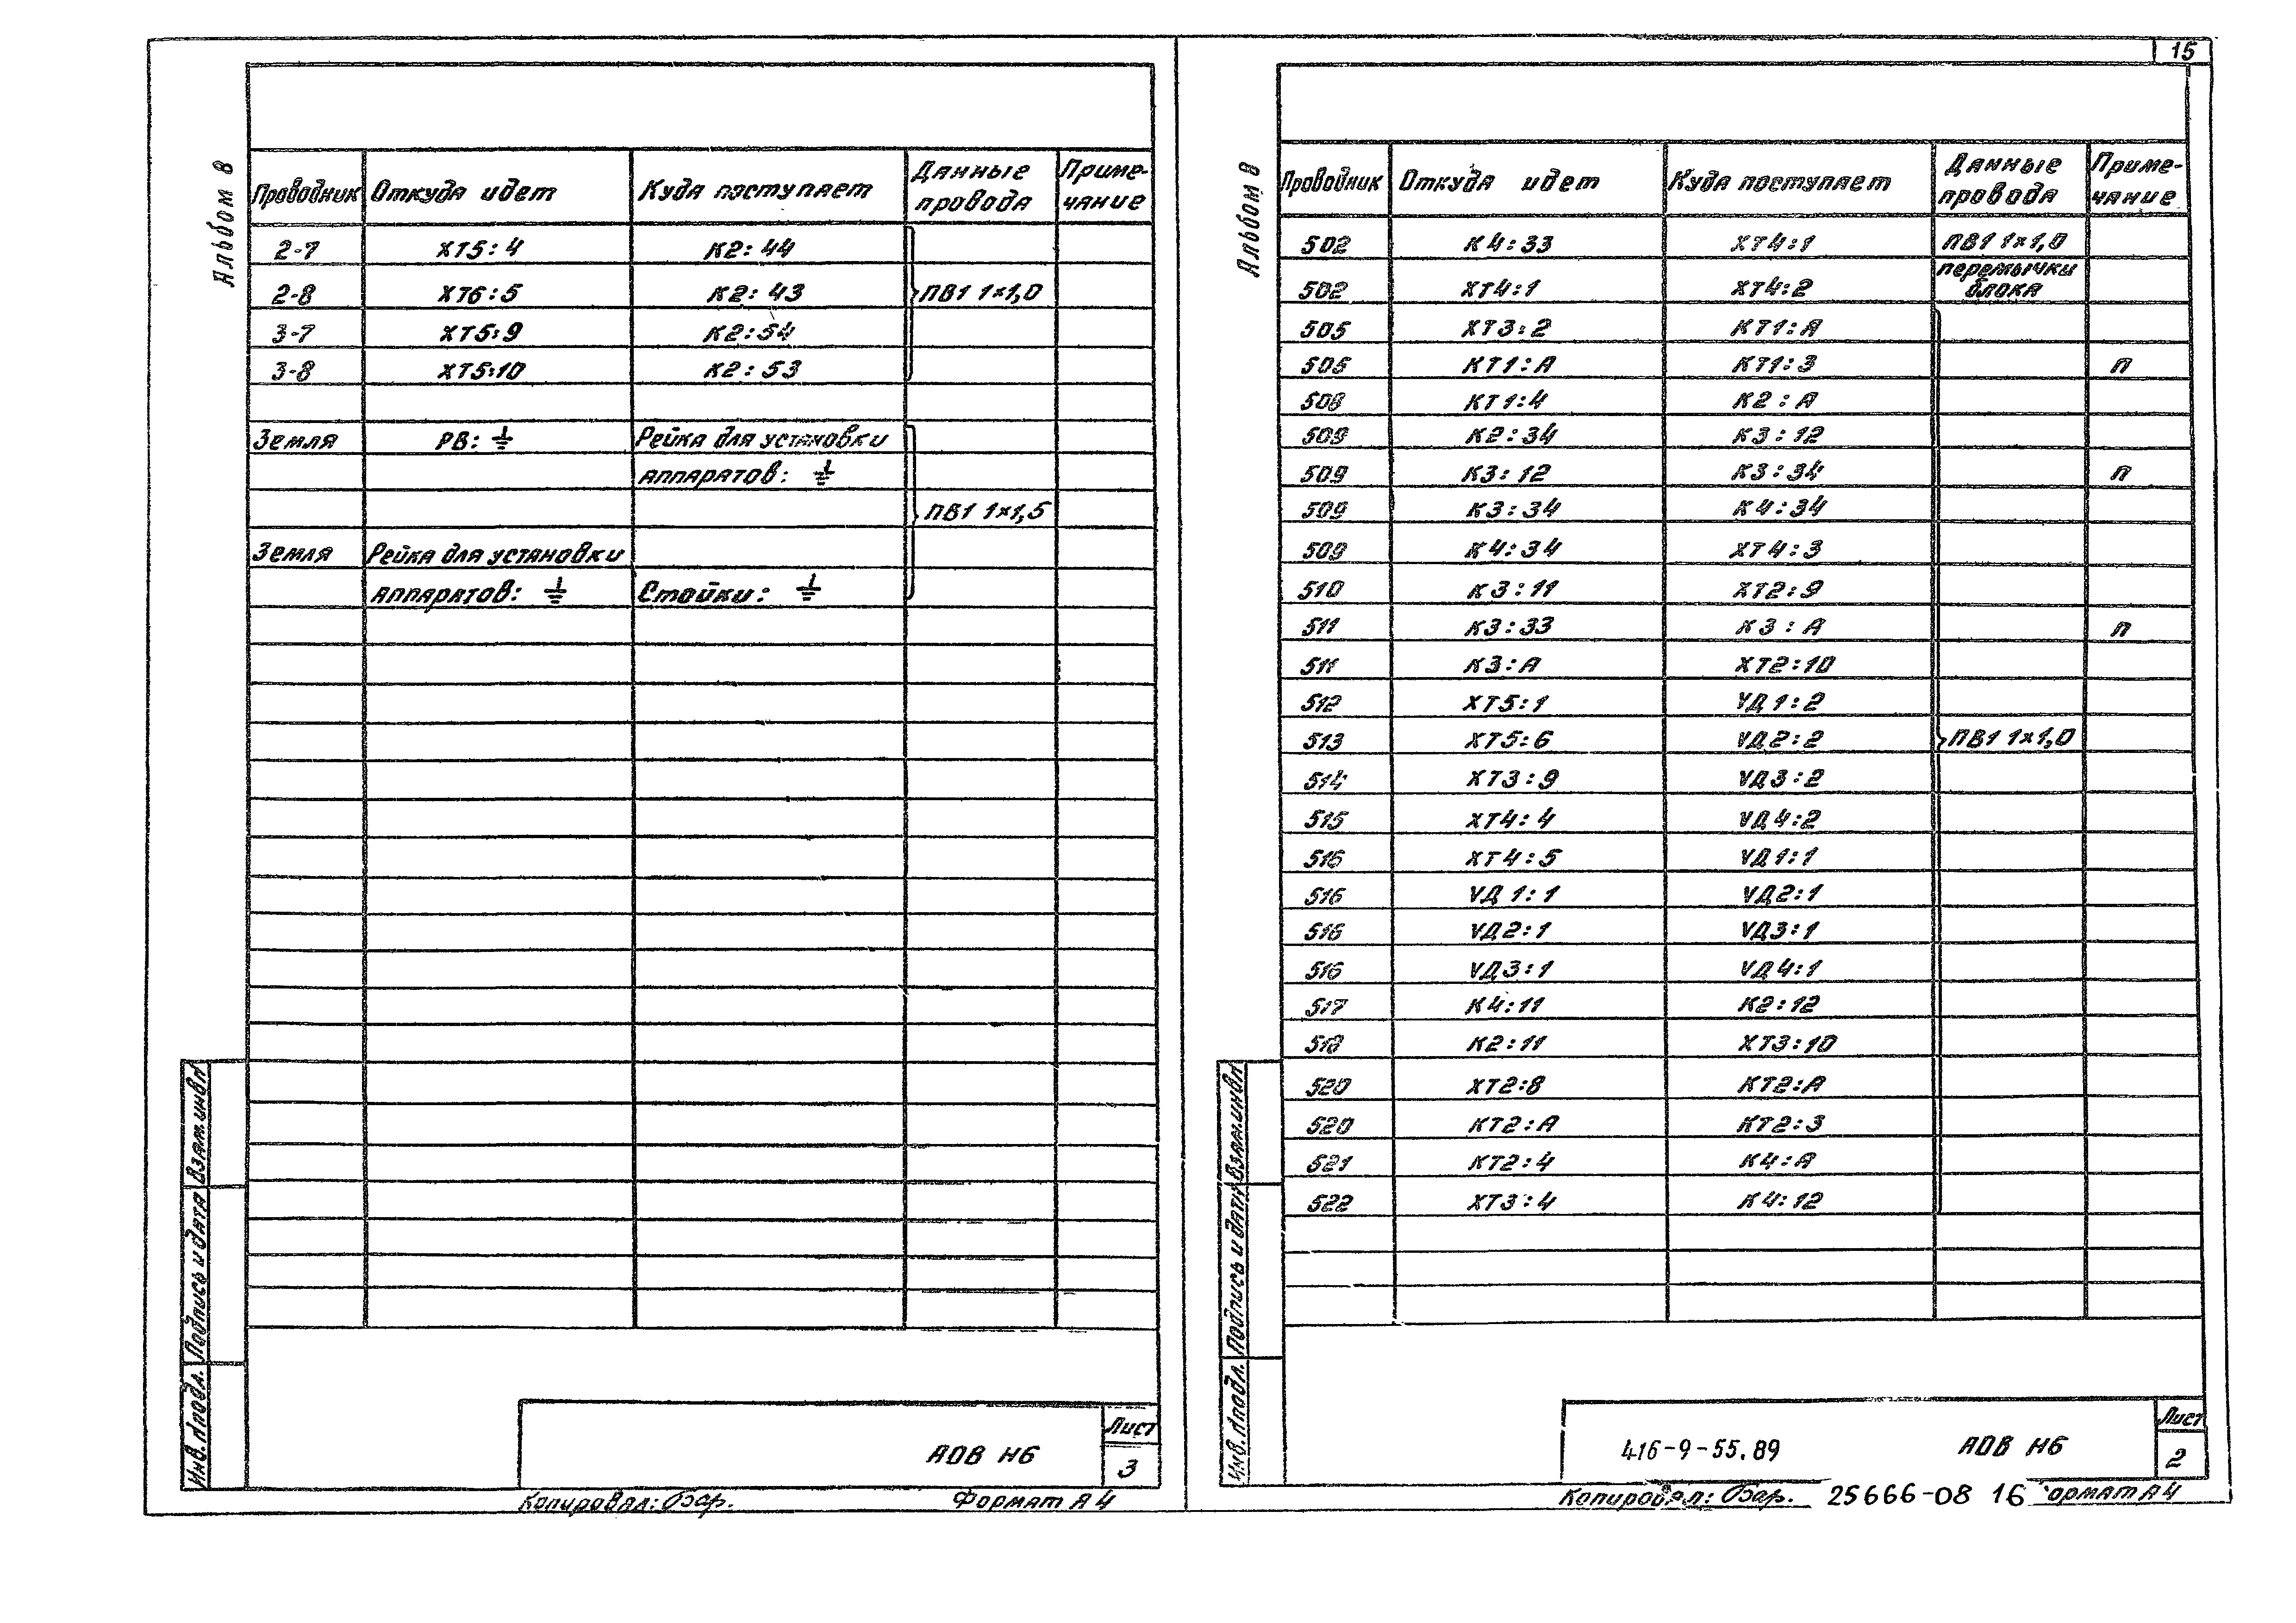 15
Альбом 8
Проводник Откуда идет Куда поступает Данные провода Приме-чание
2-7 ХТ5:4 К2:44
2-8 ХТ6:5 К2:43 ПВ1 1×1,0
3-7 ХТ5:9 К2:54
3-8 ХТ5:10 К2:53
Земля РВ: Рейка для установки
аппаратов:
ПВ1 1×1,5
Земля Рейка для установки
аппаратов: Стойки:
Взам.инв.№
Подпись и дата
Инв.№подл.
АОВ Н6
Лист
3
Копировал: Бар. Формат А4
Альбом 8
Проводник Откуда идет Куда поступает Данные провода Приме-чание
502 К4:33 ХТ4:1 ПВ1 1×1,0
502 ХТ4:1 ХТ4:2 перемычки блока
505 ХТ3:2 КТ1:А
505 КТ1:А КТ1:3 п
508 КТ1:4 К2:А
509 К2:34 К3:12
509 К3:12 К3:34 п
509 К3:34 К4:34
509 К4:34 ХТ4:3
510 К3:11 ХТ2:9
511 К3:33 К3:А п
511 К3:А ХТ2:10
512 ХТ5:1 УД1:2
513 ХТ5:6 УД2:2 ПВ1 1×1,0
514 ХТ3:9 УД3:2
515 ХТ4:4 УД4:2
516 ХТ4:5 УД1:1
516 УД1:1 УД2:1
516 УД2:1 УД3:1
516 УД3:1 УД4:1
517 К4:11 К2:12
518 К2:11 ХТ3:10
520 ХТ2:8 КТ2:А
520 КТ2:А КТ2:3
521 КТ2:4 К4:А
522 ХТ3:4 К4:12
Взам.инв.№
Подпись и дата
Инв.№подл.
416-9-55.89 АОВ Н6
Лист
2
Копировал: Бар. 25666-08 16 ормат А4